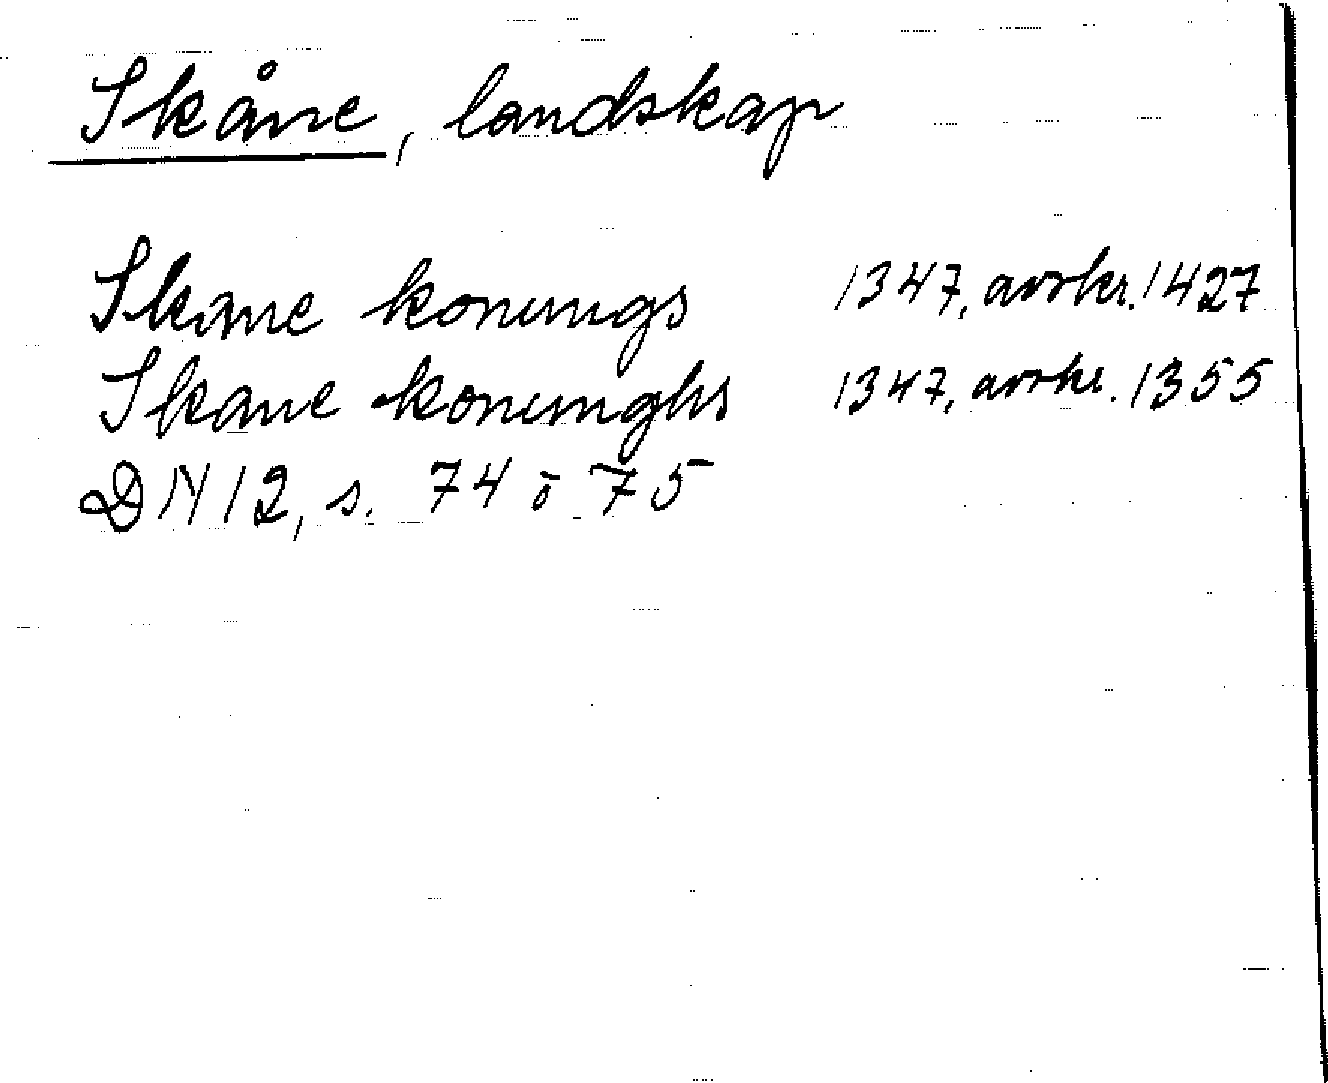 Skåne, landskap
Skane konungs 1347, avskr. 1427
Skane konunghs 1347, avskr. 1355
DN 12, s. 74 o 75